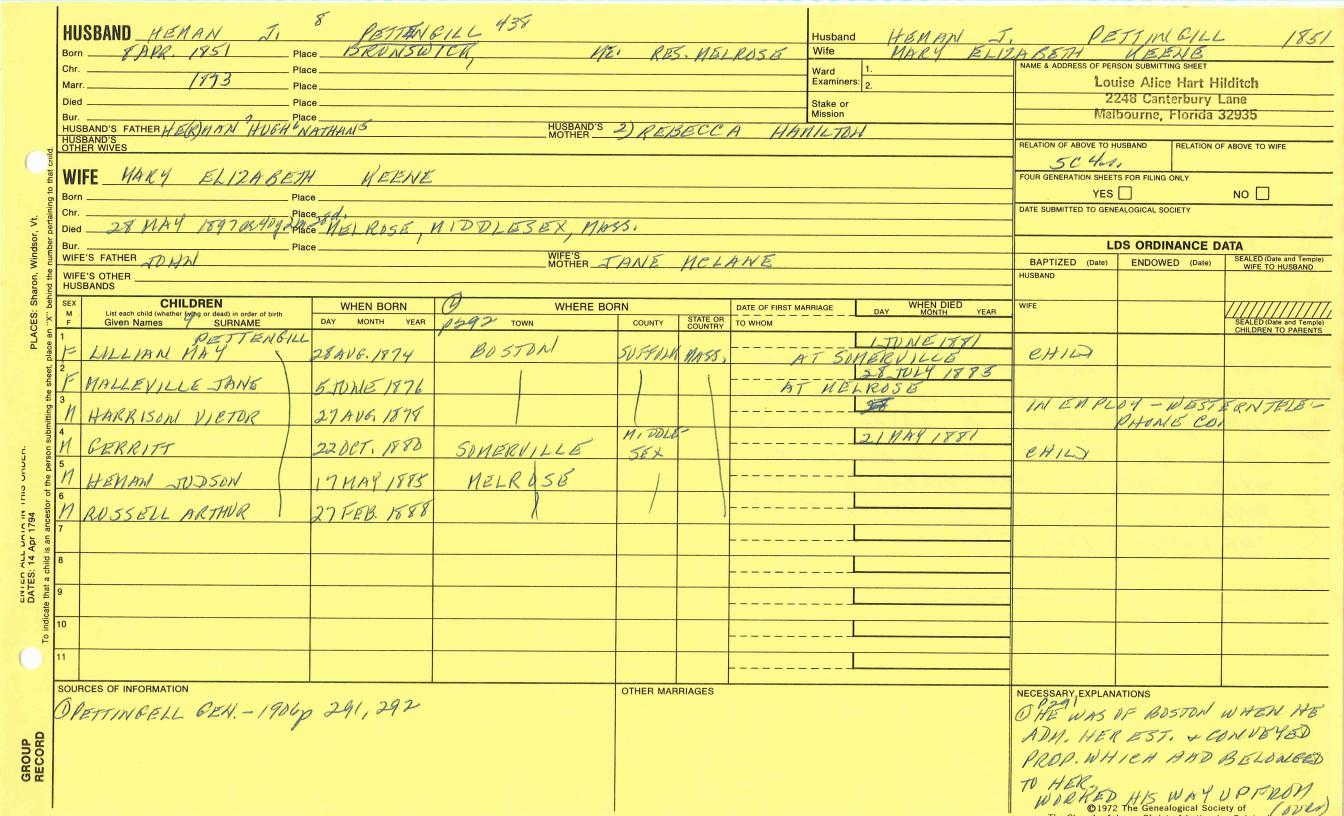 HUSBAND HEMAN J. 8 PETTENGILL 438
Born 8 APR. 1851 Place BRUNSWICK, ME. RES. MELROSE
Chr. Place
Marr. 1873 Place
Died Place
Bur. Place
HUSBAND'S FATHER HE(R)MAN 7 HUGH 6 NATHAN 5 HUSBAND'S MOTHER 2) REBECCA HAMILTON
HUSBAND'S OTHER WIVES
Husband HEMAN J. PETTINGILL 1851
Wife MARY ELIZABETH KEENE
Ward Examiners: 1.
2.
Stake or Mission
NAME & ADDRESS OF PERSON SUBMITTING SHEET
Louise Alice Hart Hilditch
2248 Canterbury Lane
Melbourne, Florida 32935
RELATION OF ABOVE TO HUSBAND RELATION OF ABOVE TO WIFE
5C 4
FOUR GENERATION SHEETS FOR FILING ONLY
YES NO
DATE SUBMITTED TO GENEALOGICAL SOCIETY
WIFE MARY ELIZABETH KEENE
Born Place
Chr. Place
Died 28 MAY 1897 Place MELROSE, MIDDLESEX, MASS.
Bur. Place
WIFE'S FATHER JOHN WIFE'S MOTHER JANE MCLANE
WIFE'S OTHER HUSBANDS
LDS ORDINANCE DATA
BAPTIZED (Date) ENDOWED (Date) SEALED (Date and Temple) WIFE TO HUSBAND
HUSBAND
WIFE
SEALED (Date and Temple) CHILDREN TO PARENTS
SEX M F CHILDREN WHEN BORN ① WHERE BORN DATE OF FIRST MARRIAGE WHEN DIED
List each child (whether living or dead) in order of birth
Given Names 9 SURNAME DAY MONTH YEAR P292 TOWN COUNTY STATE OR COUNTRY TO WHOM DAY MONTH YEAR
PETTENGILL
1 F LILLIAN MAY 28 AUG. 1874 BOSTON SUFFOLK MASS. 1 JUNE 1881 AT SOMERVILLE CHILD
2 F MALLEVILLE JANE 5 JUNE 1876 28 JULY 1885 AT MELROSE
3 M HARRISON VICTOR 27 AUG. 1878 IN EMPLOY - WESTERN TELE-
PHONE CO.
4 M GERRITT 22 OCT. 1880 SOMERVILLE MIDDLE-SEX 21 MAY 1881 CHILD
5 M HEMAN JUDSON 17 MAY 1885 MELROSE
6 M RUSSELL ARTHUR 27 FEB. 1888
7
8
9
10
11
SOURCES OF INFORMATION
① PETTINGELL GEN. - 1906 p 291, 292
OTHER MARRIAGES
NECESSARY EXPLANATIONS
P291
① HE WAS OF BOSTON WHEN HE
ADM. HER EST. & CONVEYED
PROP. WHICH HAD BELONGED
TO HER.
WORKED HIS WAY UP FROM
(OVER)
©1972 The Genealogical Society of
PLACES: Sharon, Windsor, Vt.
ENTER ALL DATA IN THIS ORDER:
DATES: 14 Apr 1794
To indicate that a child is an ancestor of the person submitting the sheet, place an "X" behind the number pertaining to that child.
GROUP RECORD